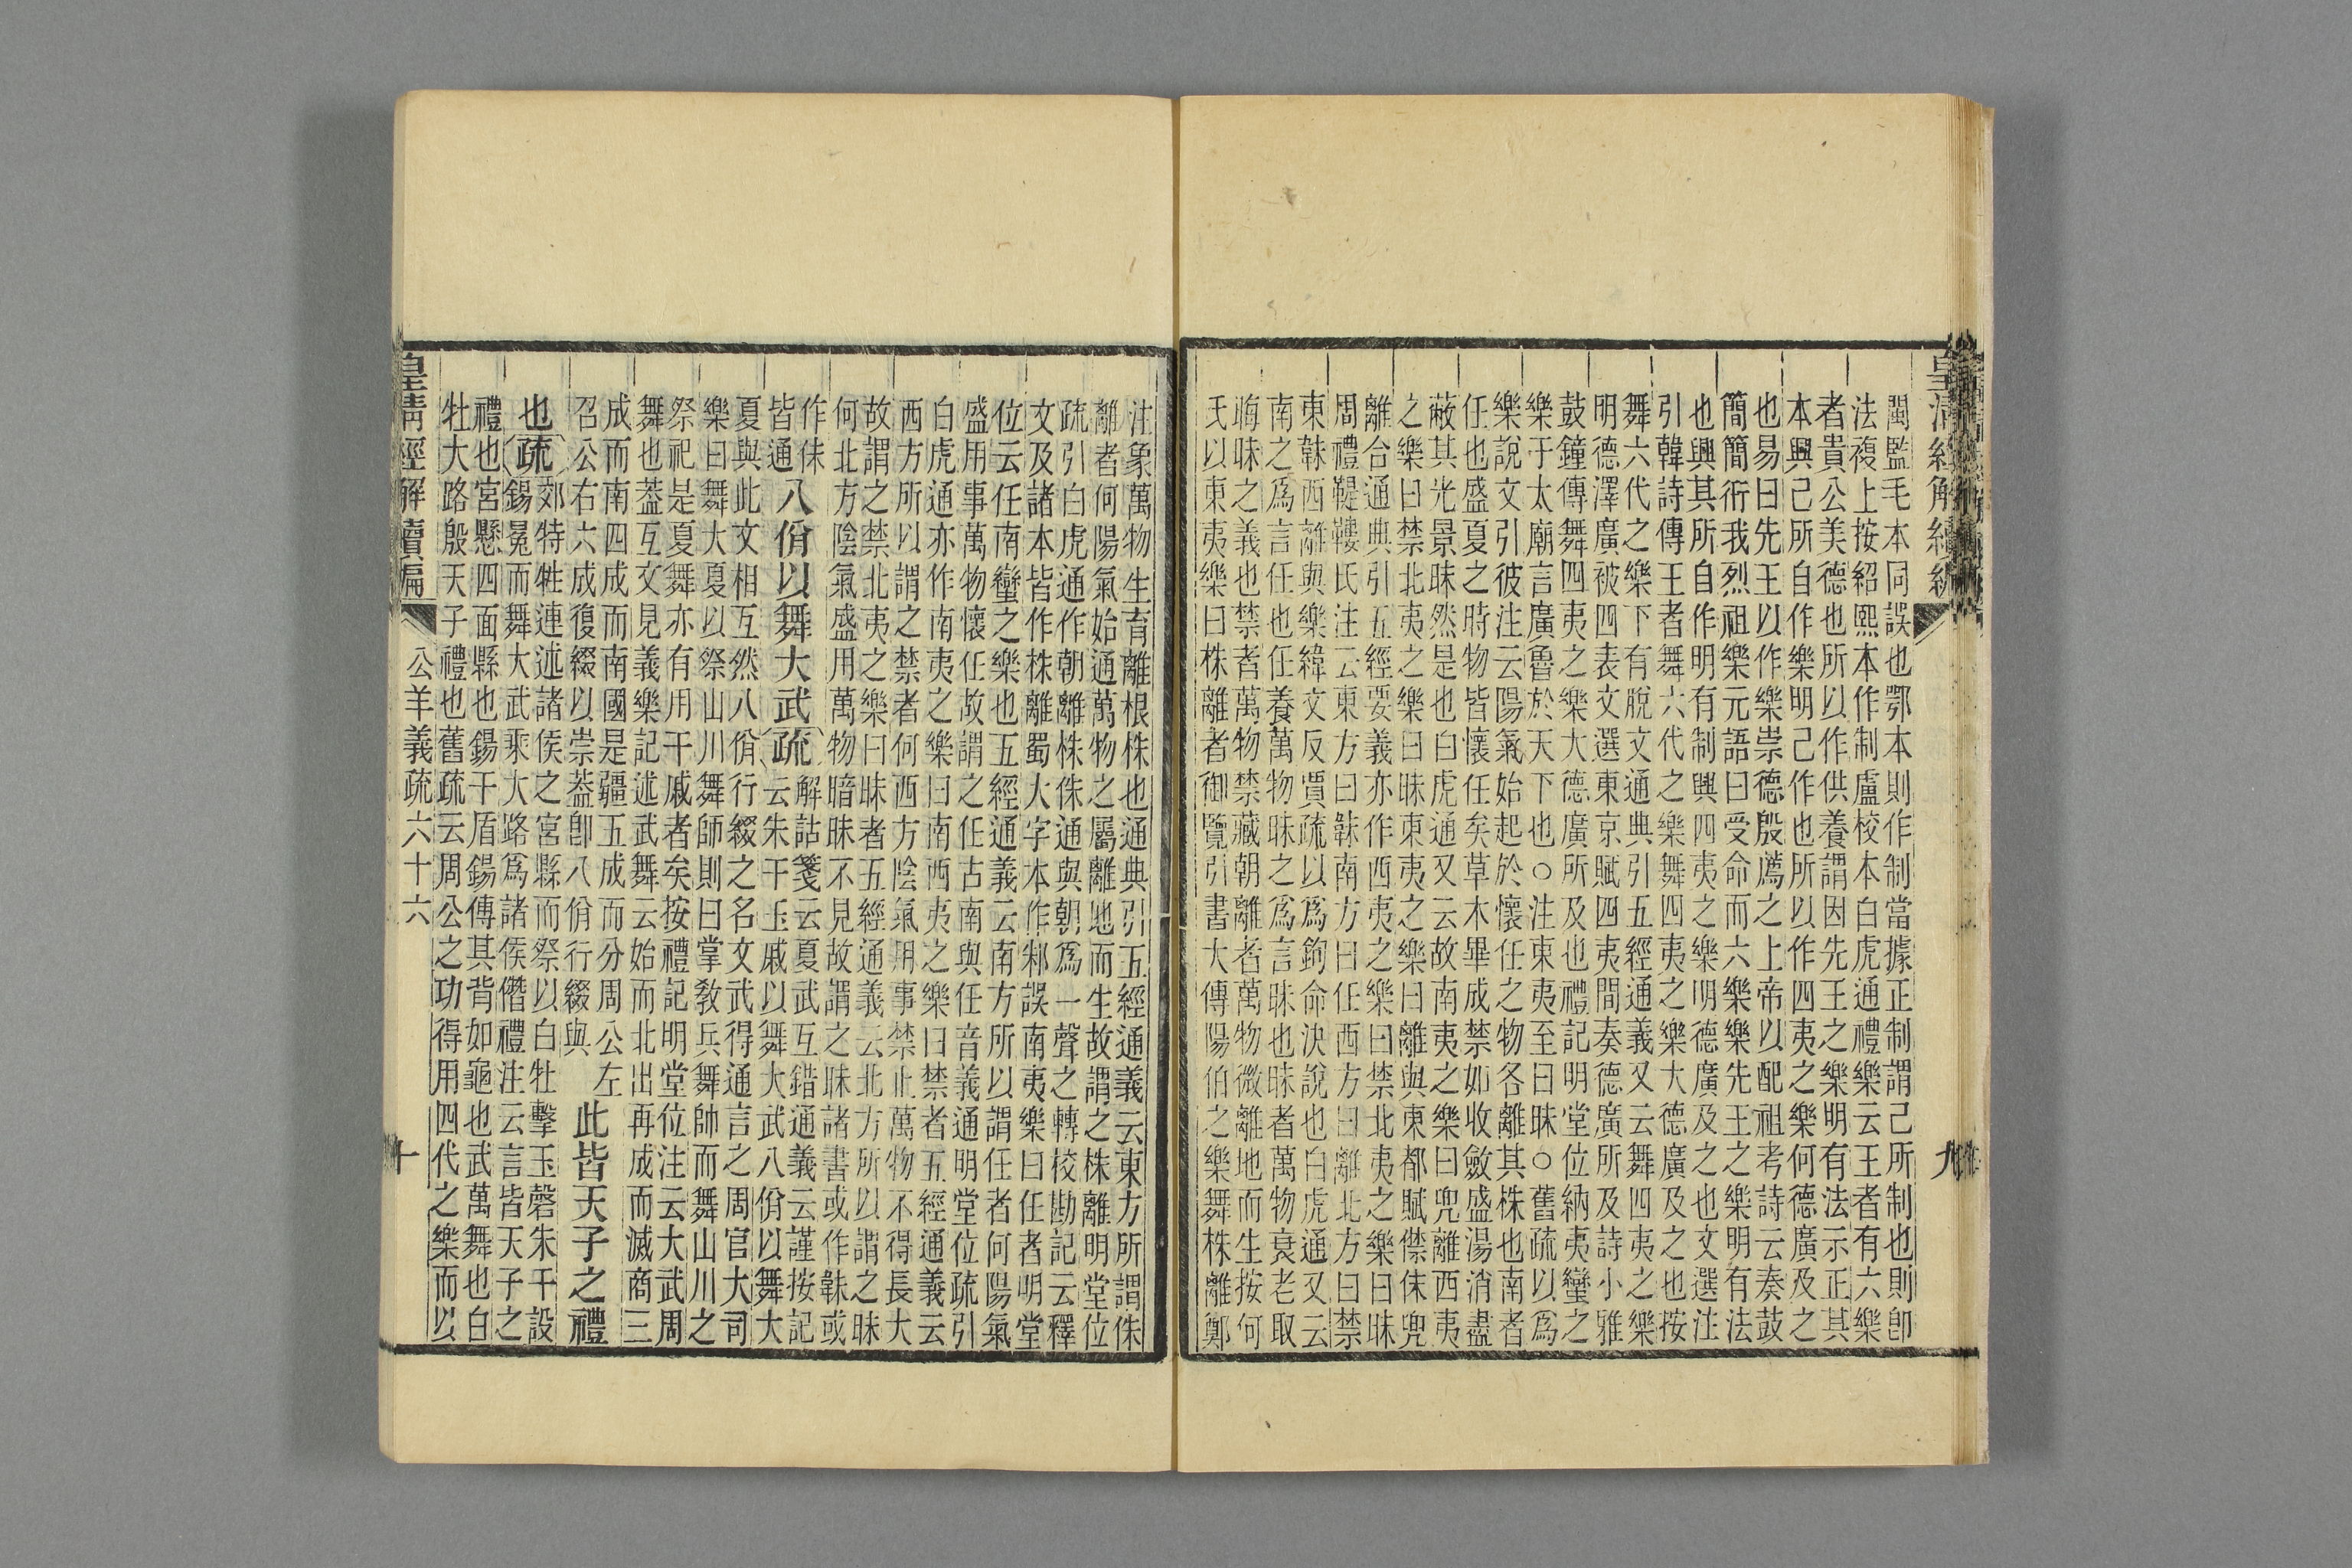 皇清經解續編
閩監毛本同誤也鄂本則作制當據正制謂己所制也則卽
法複上按紹熙本作制盧校本白虎通禮樂云王者有六樂
者貴公美德也所以作供養謂因先王之樂明有法示正其
本興己所自作樂明己作也所以作四夷之樂何德廣及之
也易曰先王以作樂崇德殷薦之上帝以配祖考詩云奏鼓
簡簡衎我烈祖樂元語曰受命而六樂樂先王之樂明有法
也興其所自作明有制興四夷之樂明德廣及之也文選注
引韓詩傳王者舞六代之樂舞四夷之樂大德廣及之也按
舞六代之樂下有脫文通典引五經通義又云舞四夷之樂
明德澤廣被四表文選東京賦四夷間奏德廣所及詩小雅
鼓鐘傳舞四夷之樂大德廣所及也禮記明堂位納夷蠻之
樂于太廟言廣魯於天下也○注東夷至曰昧○舊疏以爲
樂說文引彼注云陽氣始起於懷任之物各離其株也南者
任也盛夏之時物皆懷任矣草木畢成禁如收斂盛湯消盡
蔽其光景昧然是也白虎通又云故南夷之樂曰兜離西夷
之樂曰禁北夷之樂曰昧東夷之樂曰離與東都賦僸侏兜
離合通典引五經要義亦作西夷之樂曰禁北夷之樂曰昧
周禮鞮鞻氏注云東方曰韎南方曰任西方曰離北方曰禁
東韎西離與樂緯文反賈疏以爲鉤命決說也白虎通又云
南之爲言任也任養萬物昧之爲言昧也昧者萬物衰老取
晦昧之義也禁者萬物禁藏朝離者萬物微離地而生按何
氏以東夷樂曰株離者御覽引書大傳陽伯之樂舞株離鄭
九
注象萬物生育離根株也通典引五經通義云東方所謂侏
離者何陽氣始通萬物之屬離地而生故謂之株離明堂位
疏引白虎通作朝離株侏通與朝爲一聲之轉校勘記云釋
文及諸本皆作株離蜀大字本作邾誤南夷樂曰任者明堂
位云任南蠻之樂也五經通義云南方所以謂任者何陽氣
盛用事萬物懷任故謂之任古南與任音義通明堂位疏引
白虎通亦作南夷之樂曰南西夷之樂曰禁者五經通義云
西方所以謂之禁者何西方陰氣用事禁止萬物不得長大
故謂之禁北夷之樂曰昧者五經通義云北方所以謂之昧
何北方陰氣盛用萬物暗昧不見故謂之昧諸書或作韎或
作侏
皆通
八佾以舞大武
疏
解詁箋云夏武互錯通義云謹按記
云朱干玉戚以舞大武八佾以舞大
夏與此文相互然八佾行綴之名文武得通言之周官大司
樂曰舞大夏以祭山川舞師則曰掌敎兵舞帥而舞山川之
祭祀是夏舞亦有用干戚者矣按禮記明堂位注云大武周
舞也葢互文見義樂記述武舞云始而北出再成而滅商三
成而南四成而南國是疆五成而分周公左
召公右六成復綴以崇葢卽八佾行綴與
此皆天子之禮
也
疏
郊特牲連述諸侯之宮縣而祭以白牡擊玉磬朱干設
錫冕而舞大武乘大路爲諸侯僭禮注云言皆天子之
禮也宮懸四面縣也錫干盾錫傳其背如龜也武萬舞也白
牡大路殷天子禮也舊疏云周公之功得用四代之樂而以
皇清經解續編
公羊義疏六十六
十